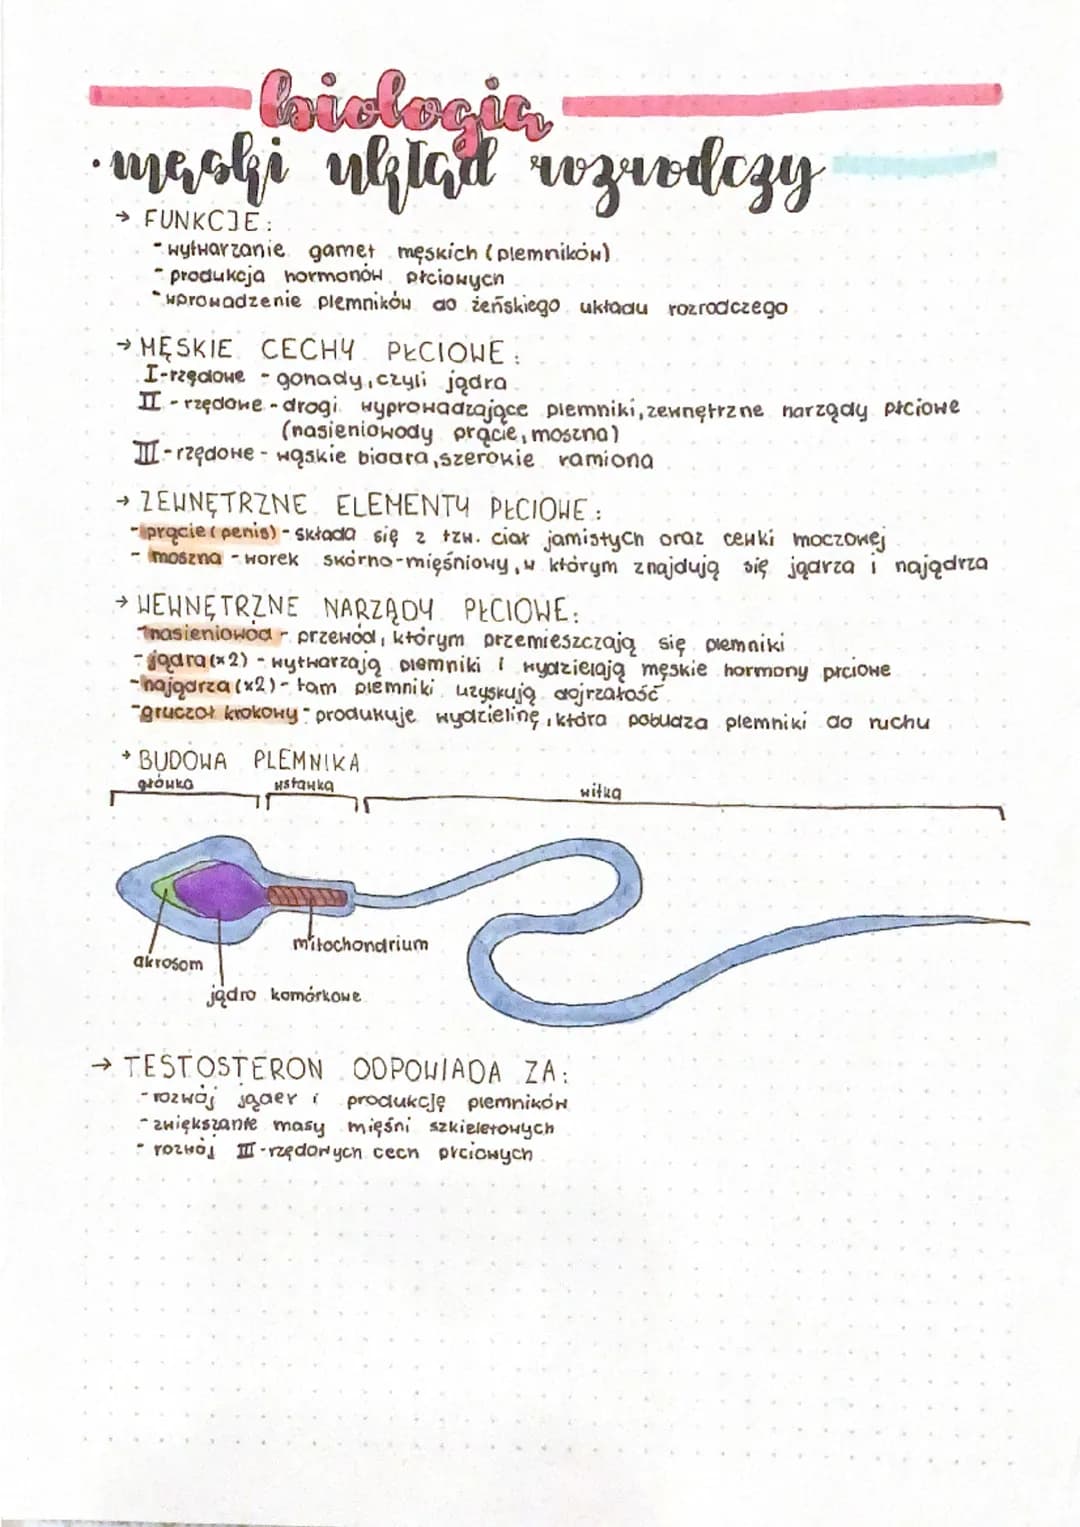 biologia
• męski układ rozrodczy
→ FUNKCJE:
- wytwarzanie gamet męskich (plemników)
- produkcja hormonów płciowych
- wprowadzenie plemników do żeńskiego układu rozrodczego
→ MĘSKIE CECHY PŁCIOWE:
I-rzędowe - gonady, czyli jądra
II - rzędowe - drogi wyprowadzające plemniki, zewnętrzne narządy płciowe
(nasieniowody prącie, moszna)
III - rzędowe - wąskie biodra, szerokie ramiona
→ ZEWNĘTRZNE ELEMENTY PŁCIOWE:
- prącie (penis) - składa się z tzw. ciał jamistych oraz cewki moczowej
- moszna - worek skórno-mięśniowy, w którym znajdują się jądrza i najądrza
→ WEWNĘTRZNE NARZĄDY PŁCIOWE:
- nasieniowód - przewód, którym przemieszczają się plemniki
- jądra (x2) - wytwarzają plemniki i wydzielają męskie hormony płciowe
- najądrza (x2) - tam plemniki uzyskują dojrzałość
- gruczoł krokowy - produkuje wydzielinę, która pobudza plemniki do ruchu
→ BUDOWA PLEMNIKA
główka wstawka witka
mitochondrium
akrosom
jądro komórkowe
→ TESTOSTERON ODPOWIADA ZA:
- rozwój jąder i produkcję plemników
- zwiększanie masy mięśni szkieletowych
- rozwój III-rzędowych cech płciowych